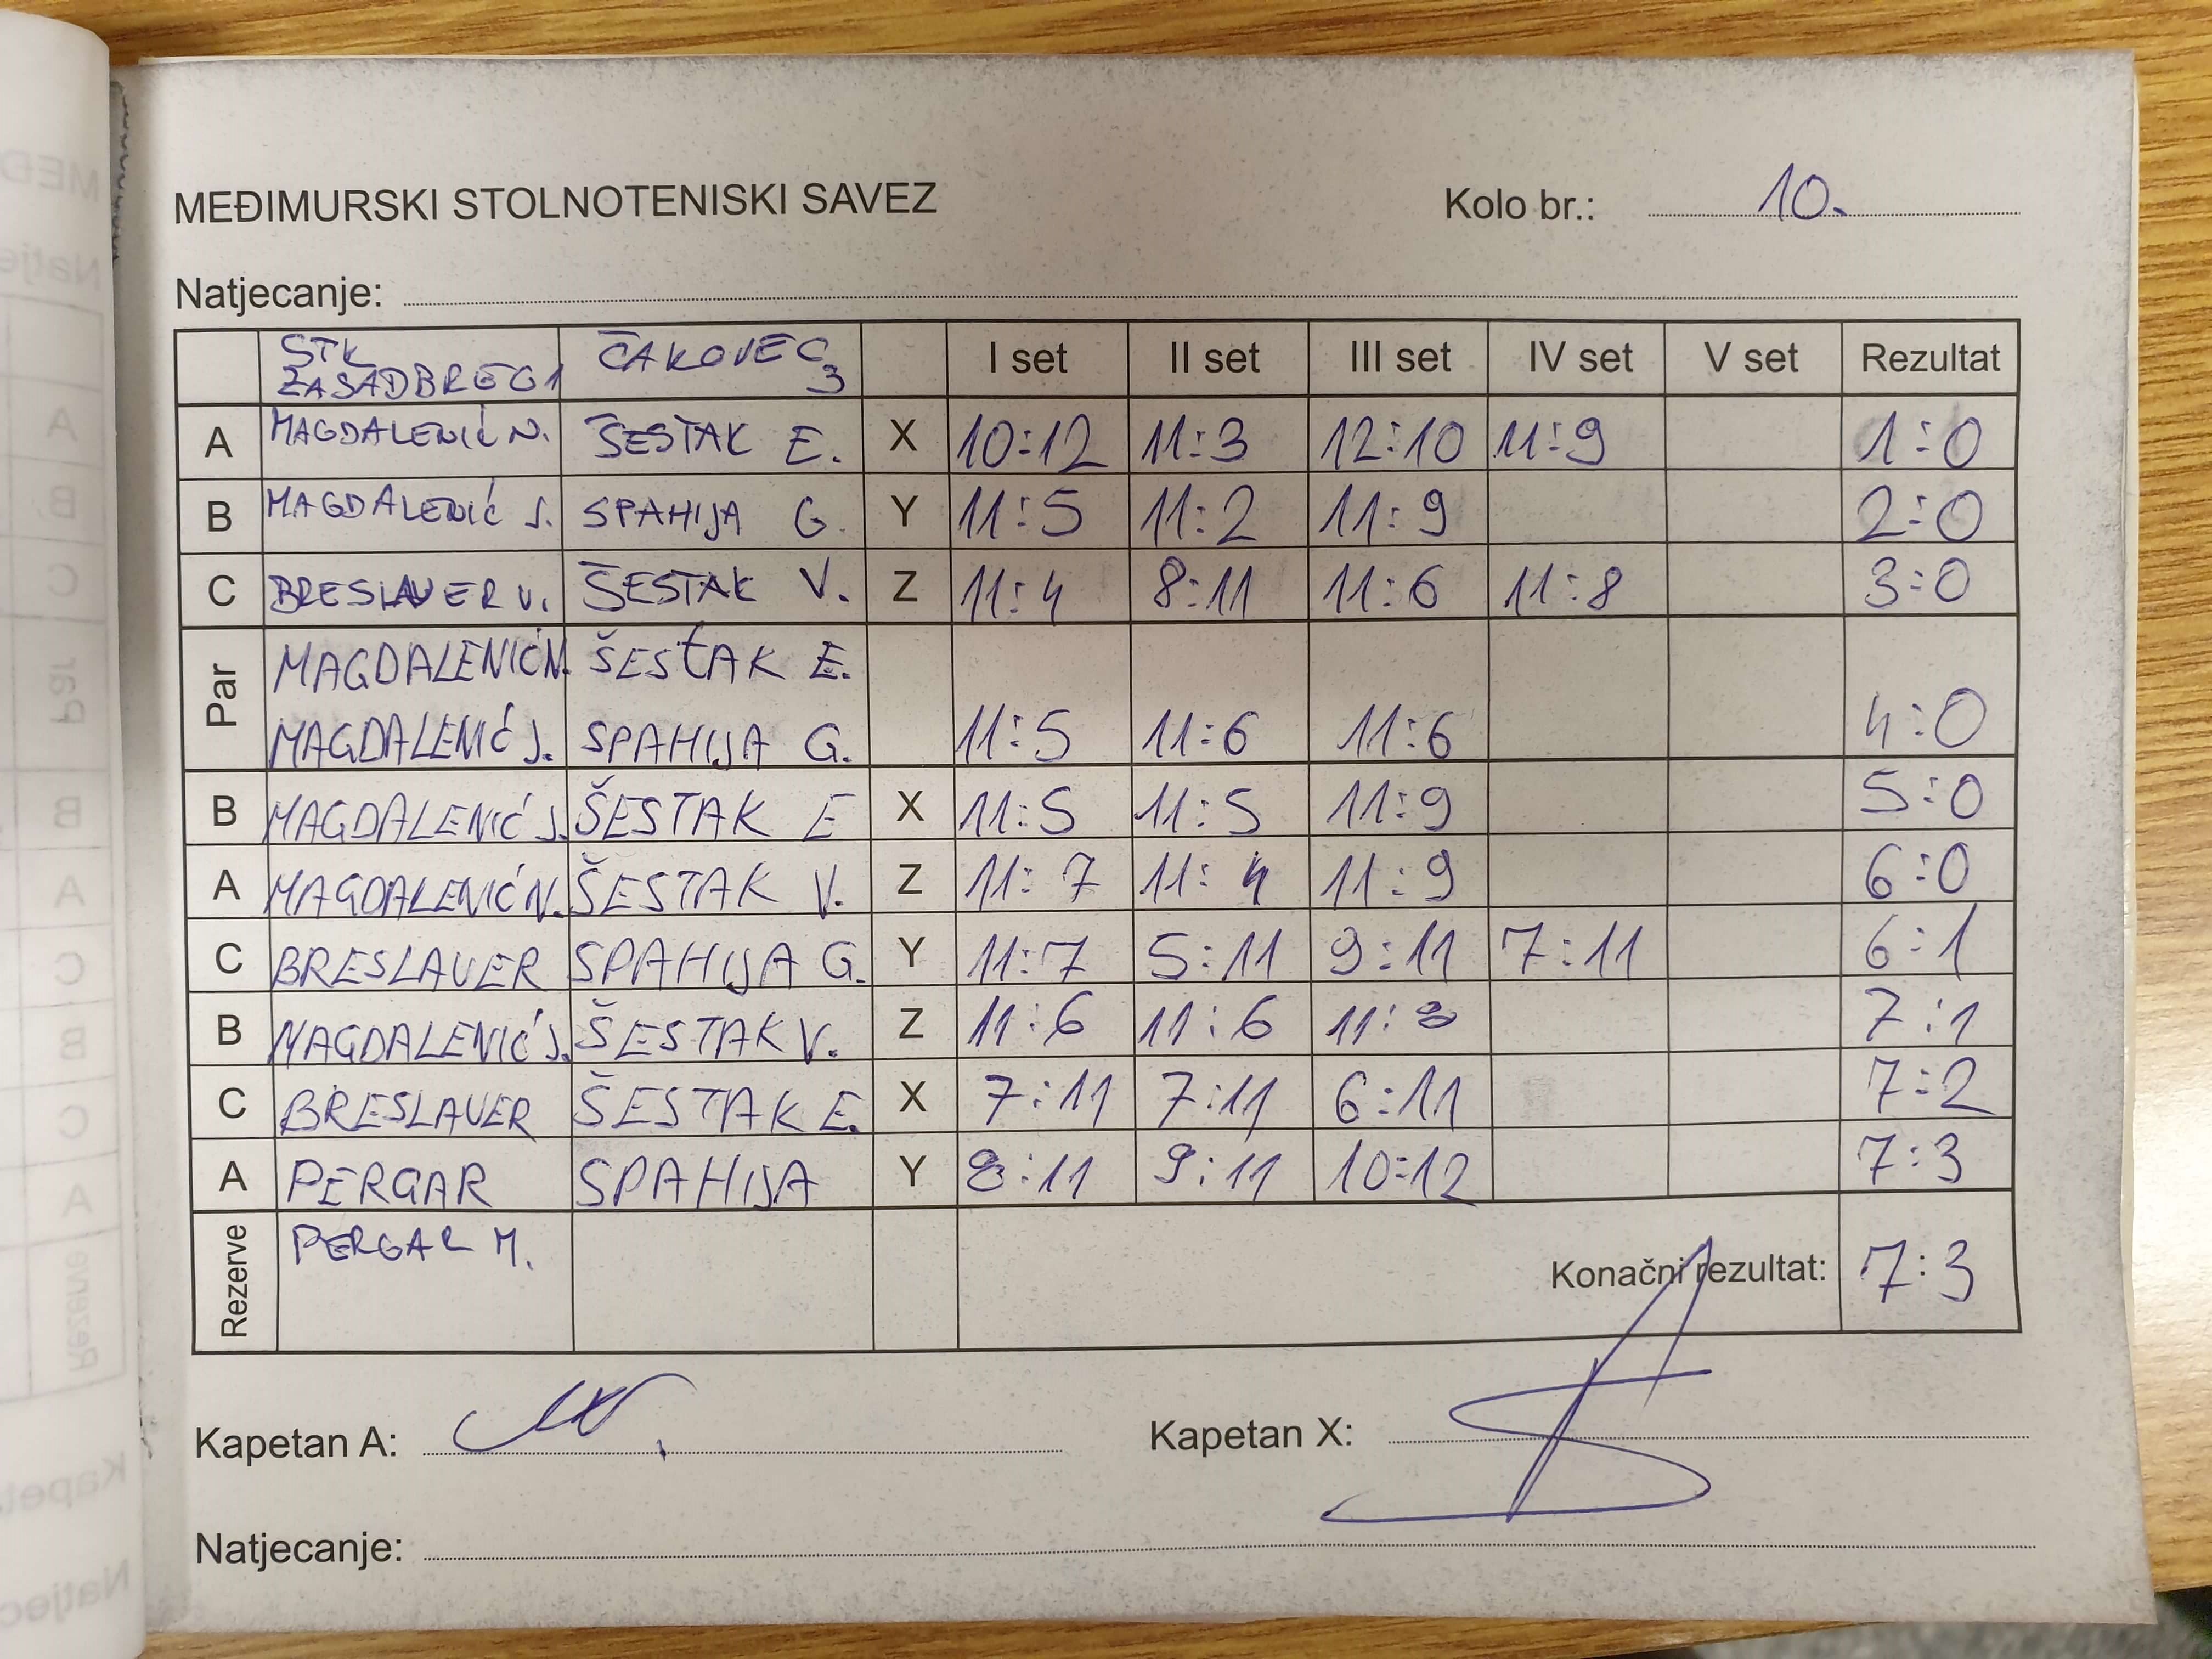 MEĐIMURSKI STOLNOTENISKI SAVEZ Kolo br.: 10.
Natjecanje:
STK ZASADBREG 1 ČAKOVEC 3 I set II set III set IV set V set Rezultat
A MAGDALENIĆ N. ŠESTAK E. X 10:12 11:3 12:10 11:9 1:0
B MAGDALENIĆ J. SPAHIJA G. Y 11:5 11:2 11:9 2:0
C BRESLAUER V. ŠESTAK V. Z 11:4 8:11 11:6 11:8 3:0
Par MAGDALENIĆ N. ŠESTAK E.
MAGDALENIĆ J. SPAHIJA G. 11:5 11:6 11:6 4:0
B MAGDALENIĆ J. ŠESTAK E X 11:5 11:5 11:9 5:0
A MAGDALENIĆ N. ŠESTAK V. Z 11:7 11:4 11:9 6:0
C BRESLAUER SPAHIJA G. Y 11:7 5:11 9:11 7:11 6:1
B MAGDALENIĆ J. ŠESTAK V. Z 11:6 11:6 11:3 7:1
C BRESLAUER ŠESTAK E. X 7:11 7:11 6:11 7:2
A PERGAR SPAHIJA Y 8:11 9:11 10:12 7:3
Rezerve PERGAR M. Konačni rezultat: 7:3
Kapetan A: Kapetan X:
Natjecanje: